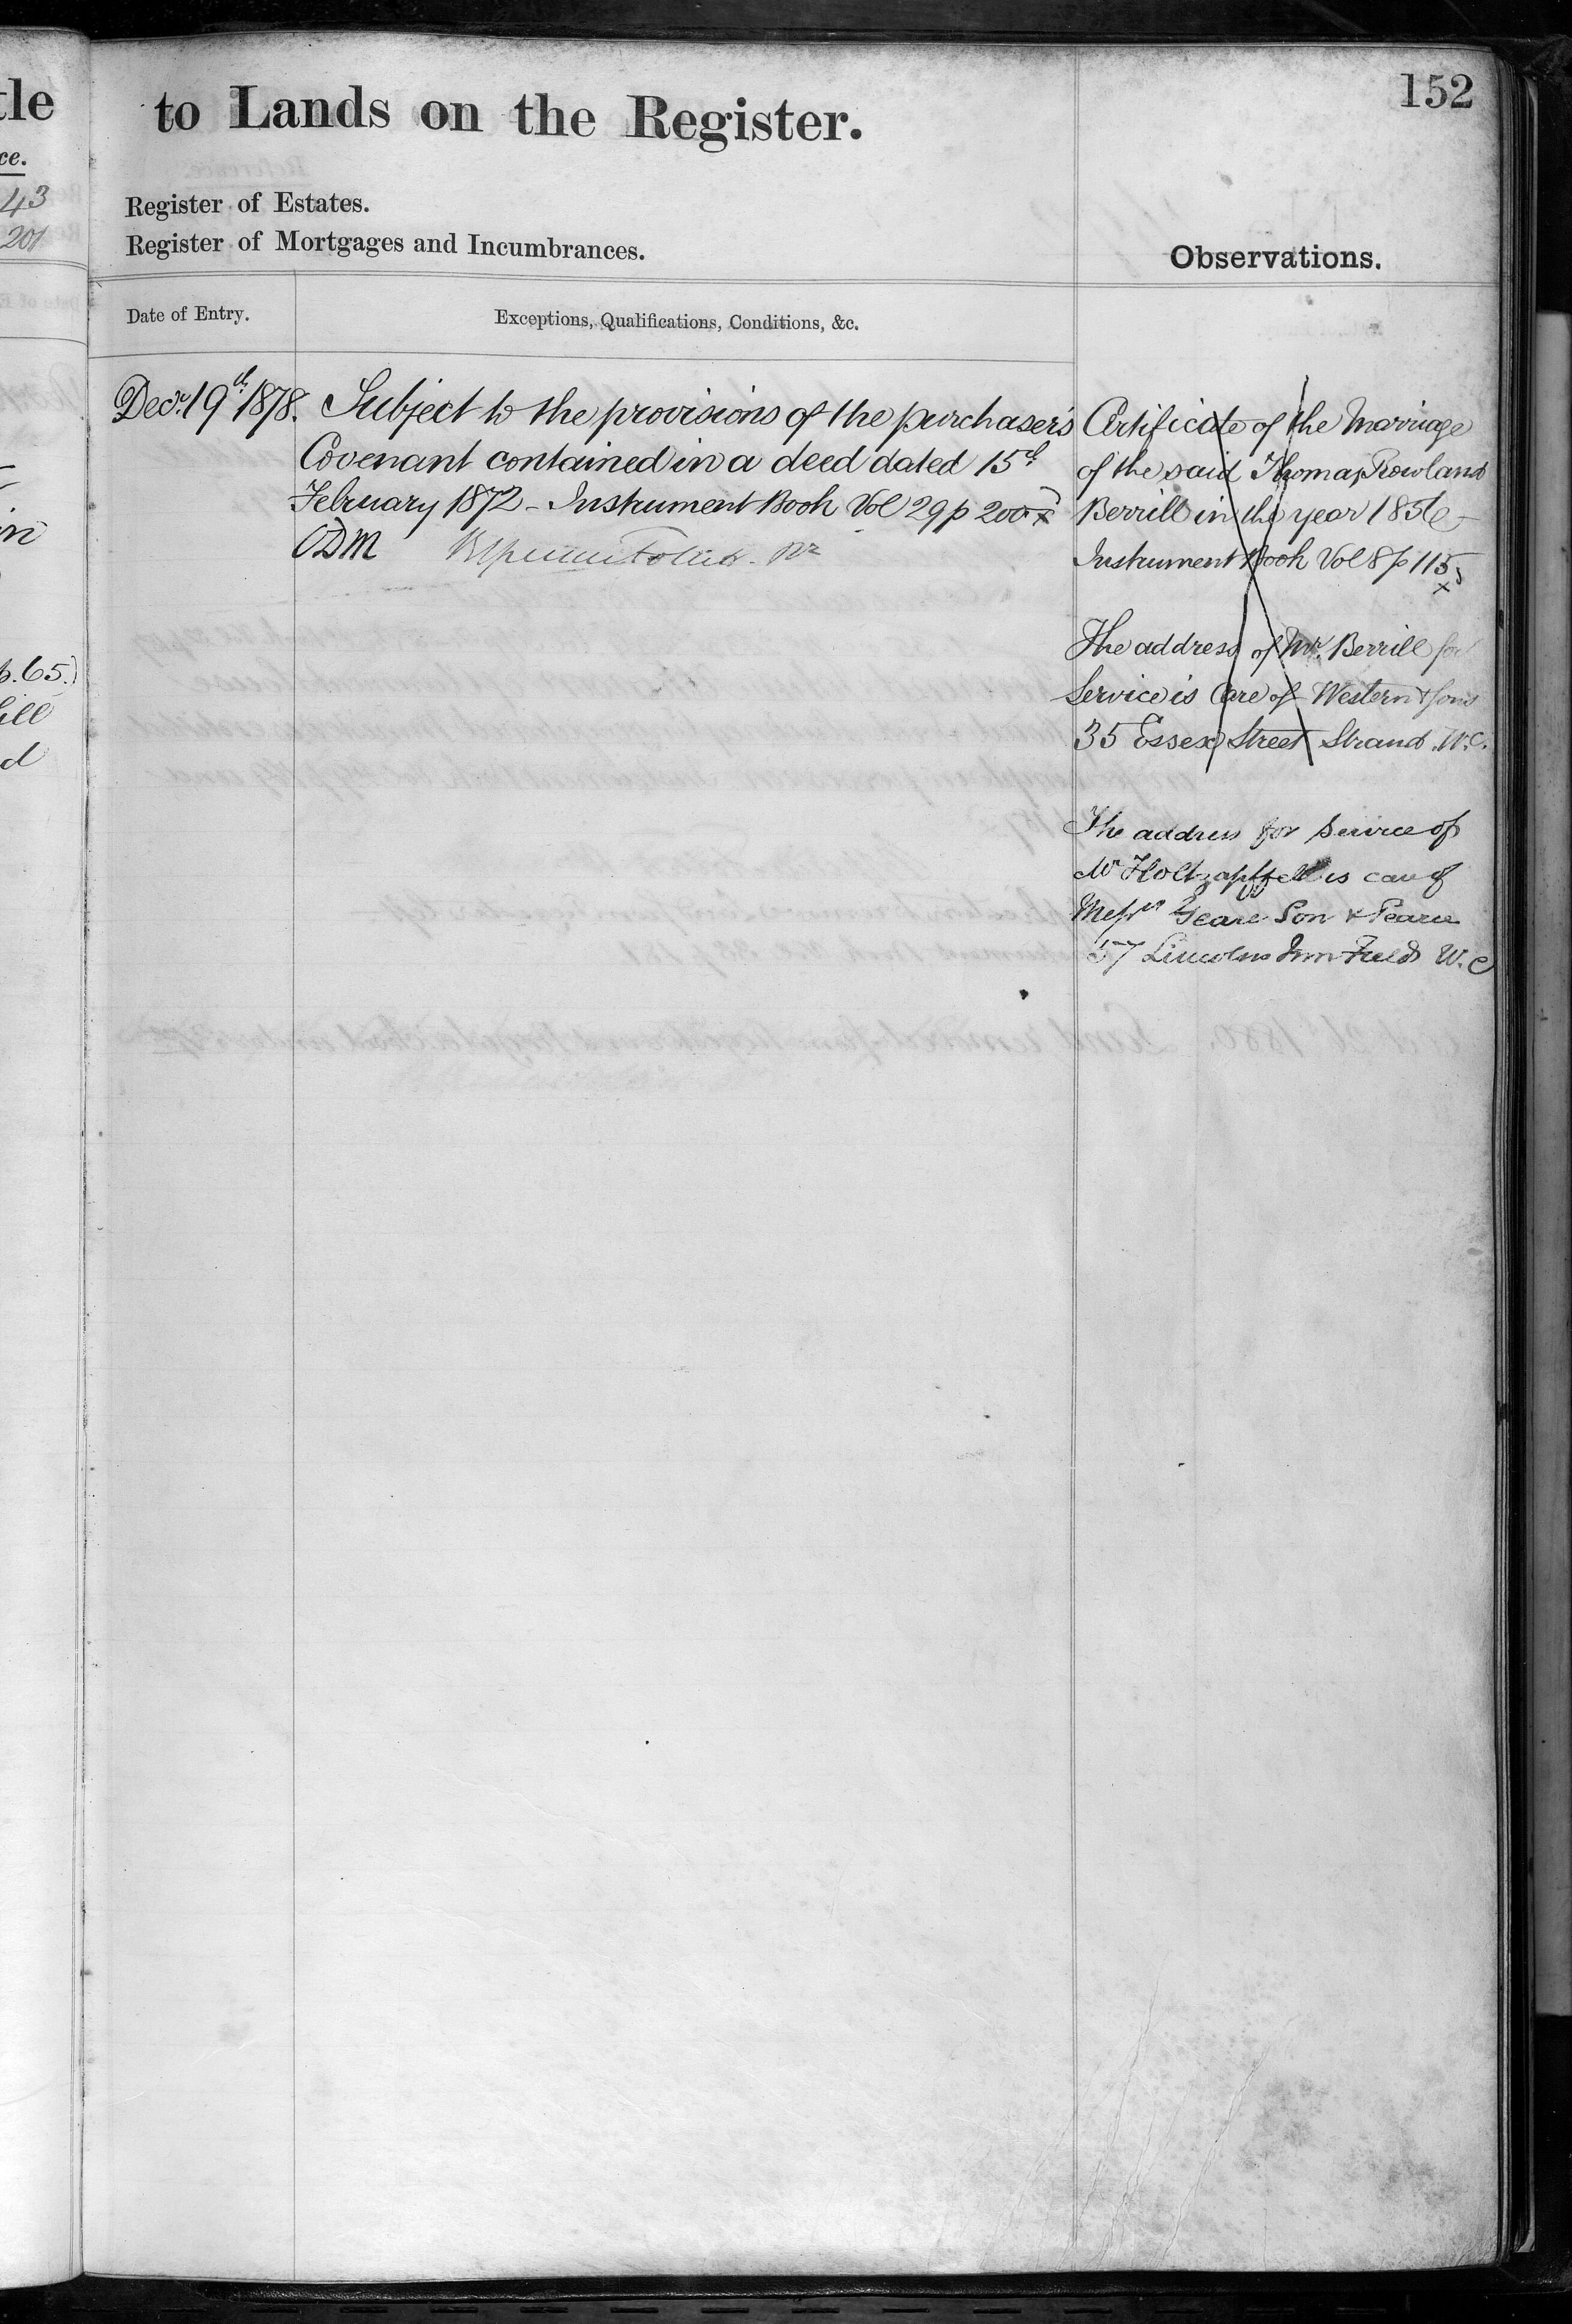 tle
ce.
43
201
in
p. 65.)
ill
d
152
to Lands on the Register.
Register of Estates.
Register of Mortgages and Incumbrances.
Observations.
Date of Entry.
Exceptions, Qualifications, Conditions, &c.
Decr. 19th 1878.
Subject to the provisions of the purchaser's
Covenant contained in a deed dated 15th
February 1872 - Instrument Book Vol 29 p 200
Certificate of the Marriage
of the said Thomas Rowland
Berrill in the year 1856
Instrument Book Vol 8 p 115
The address of Mr. Berrill for
Service is Care of Western & Sons
35 Essex Street Strand W.C.
The address for Service of
Mr Holtzapffel is care of
Messrs Geare Son & Pearce
57 Lincolns Inn Fields W.C